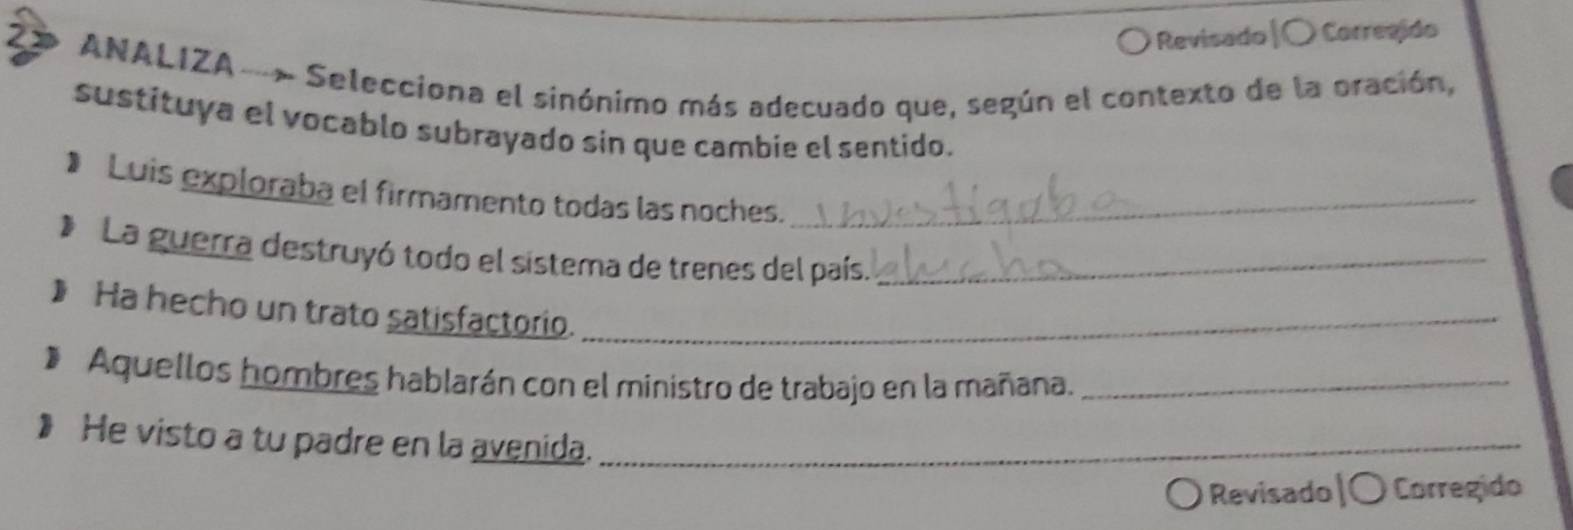 ○ Revisado | ○ Corregido
2 ANALIZA → Selecciona el sinónimo más adecuado que, según el contexto de la oración,
sustituya el vocablo subrayado sin que cambie el sentido.
Luis exploraba el firmamento todas las noches. Investigaba
La guerra destruyó todo el sistema de trenes del país. la lucha
Ha hecho un trato satisfactorio.
Aquellos hombres hablarán con el ministro de trabajo en la mañana.
He visto a tu padre en la avenida.
○ Revisado | ○ Corregido